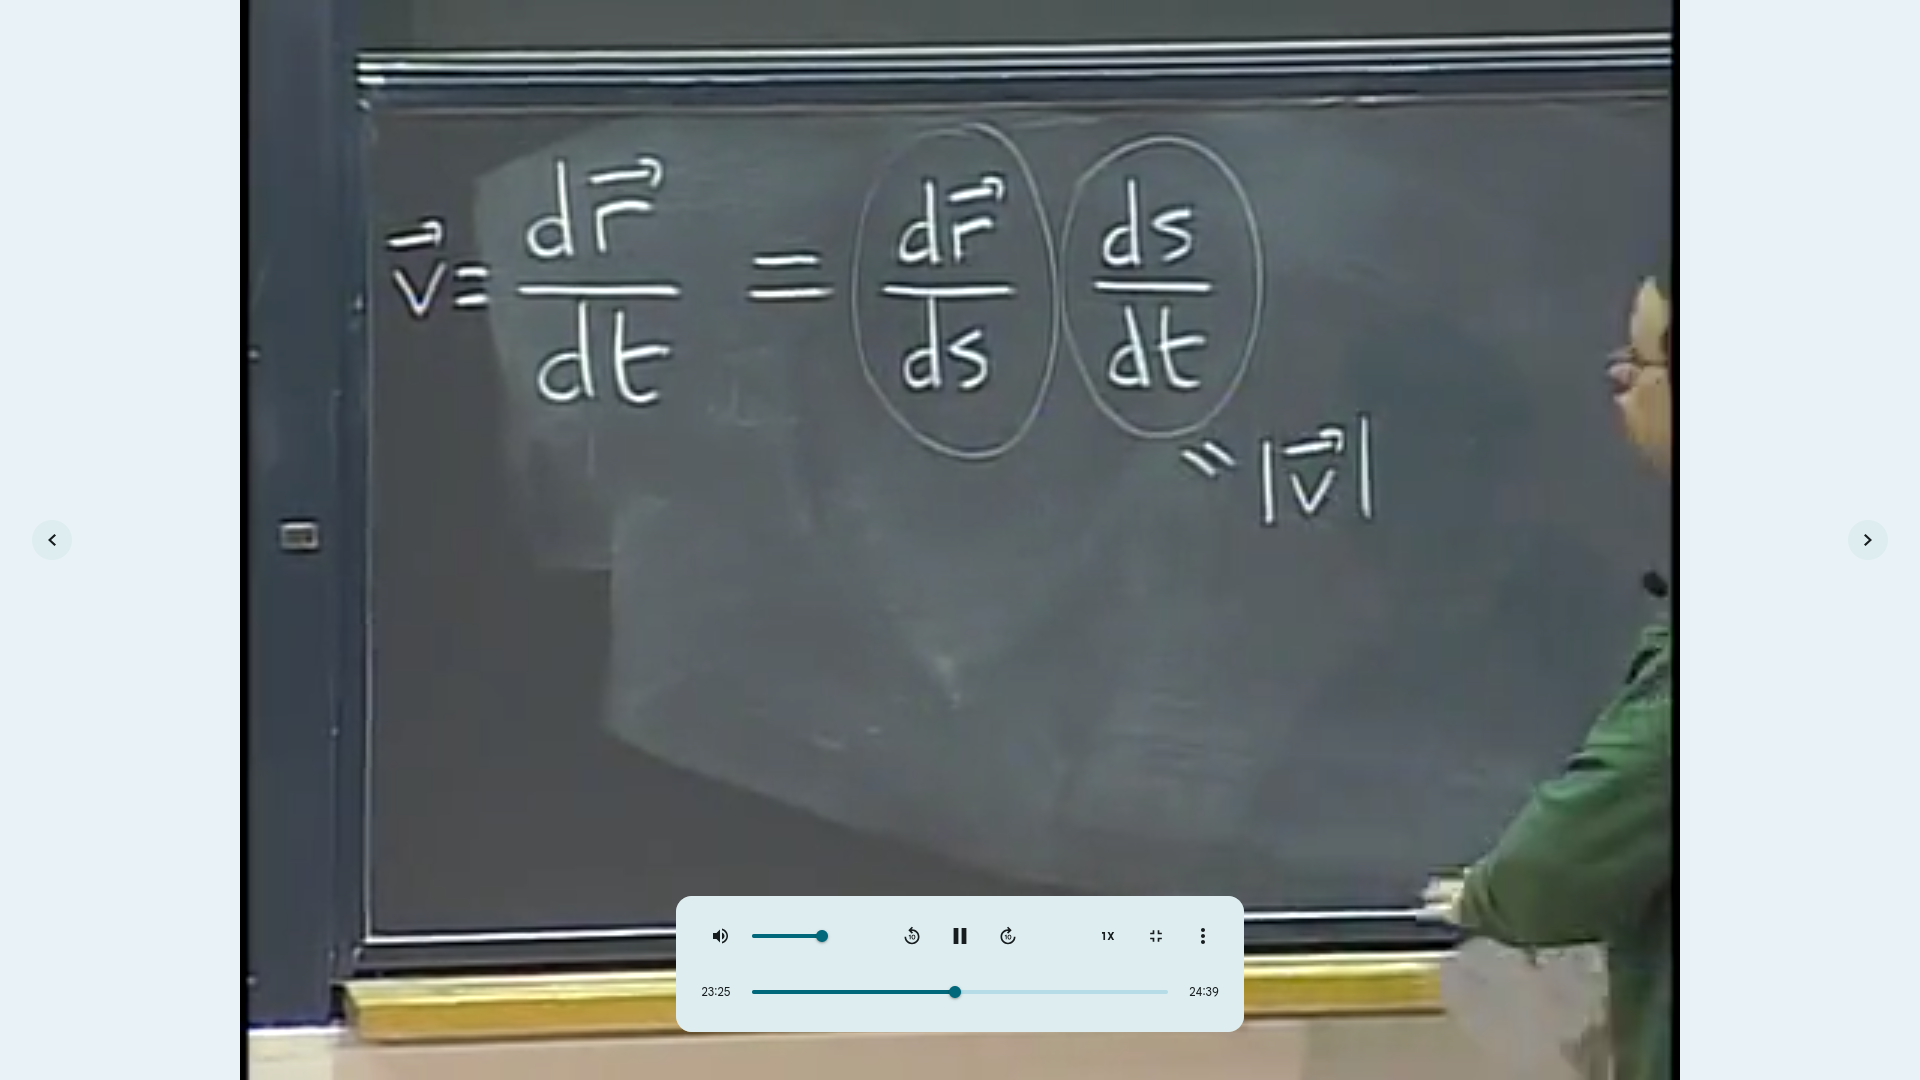 v⃗ = dr⃗/dt = dr⃗/ds ds/dt
= |v⃗|
10 10 1X
23:25 24:39